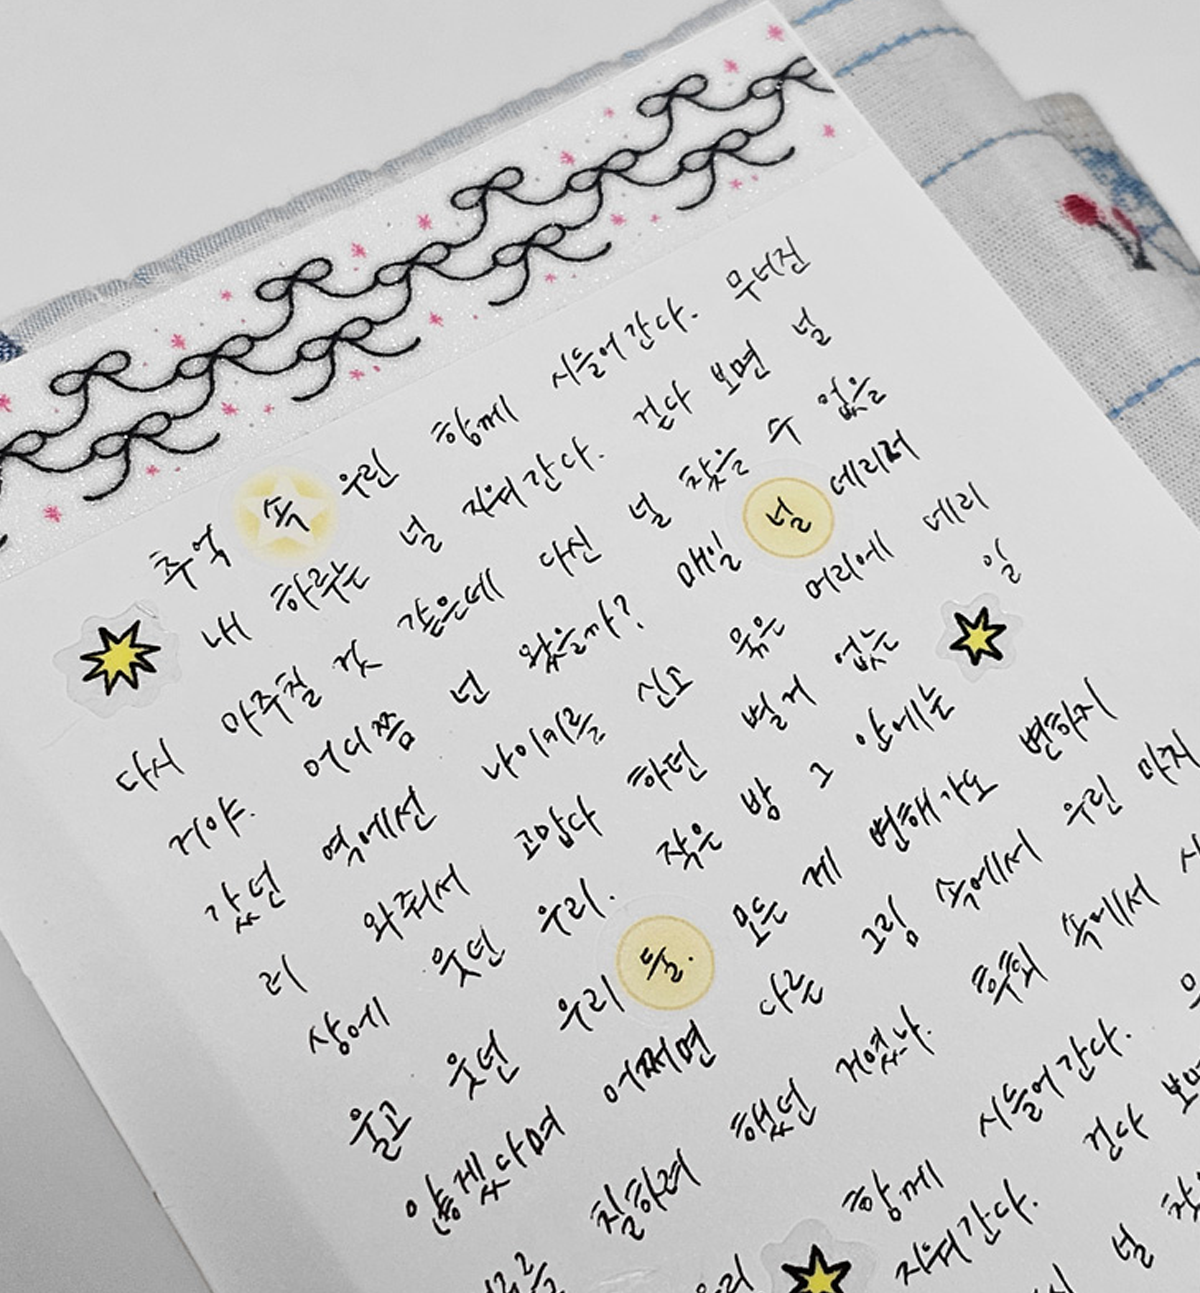 추억 속 우린 함께 시들어간다. 무너진
내 하루는 널 지워간다. 걷다 보면 널
다시 마주칠 것 같은데 다신 널 찾을 수 없을
거야. 어디쯤 넌 왔을까? 매일 널 데리러
갔던 역에선 나이키를 신고 묶은 머리에 데리
러 와줘서 고맙다 하던 별거 없는 일
상에 웃던 우리. 작은 방 그 안에는
울고 웃던 우리 둘. 모든 게 변해가도 변하지
않겠다며 어쩌면 다른 그림 속에서 우린 마지
칠하려 했던 거였나. 후회 속에서
함께 시들어간다.
지워간다. 걷다 보면
널